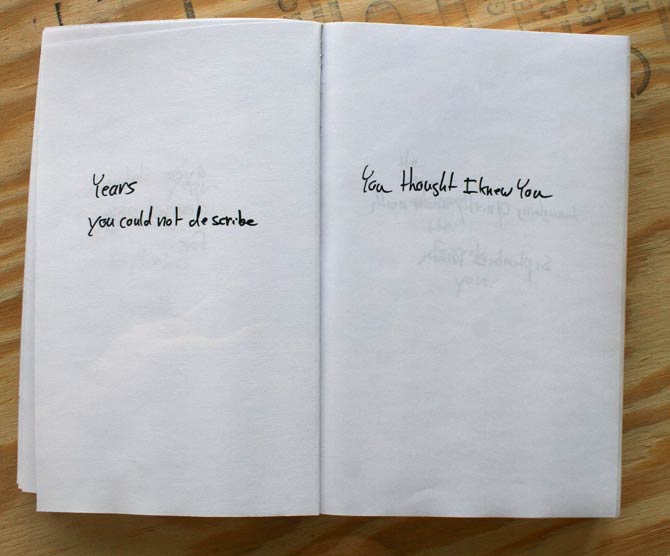 Years
you could not describe
You thought I knew You